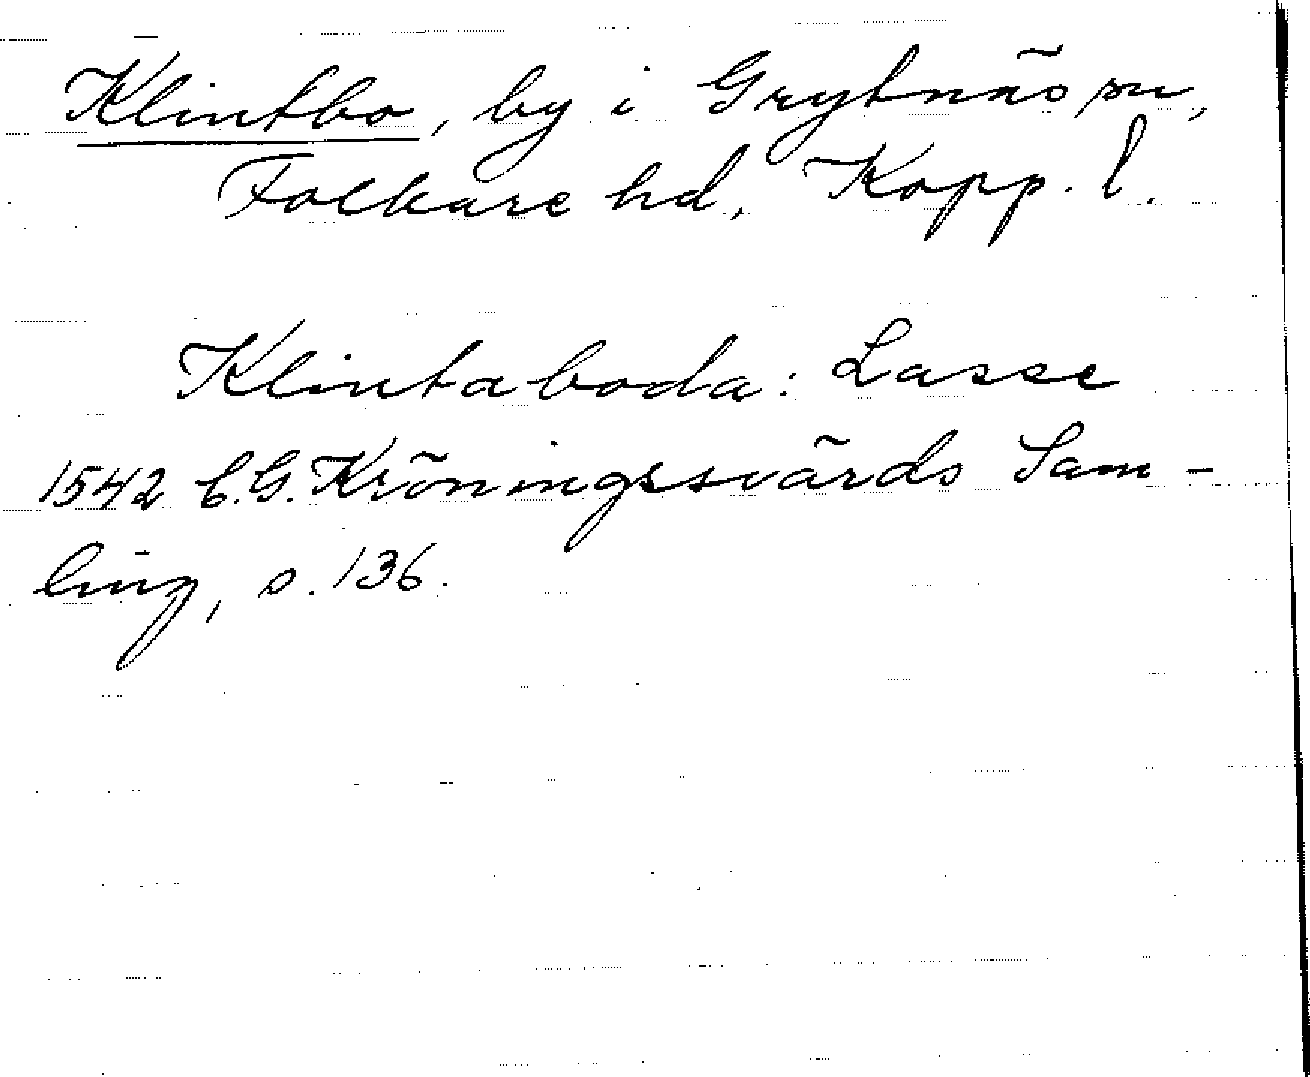 Klintbo, by i Grytnäs sn,
Folkare hd, Kopp. l.
Klintaboda: Lasse
1542 C.G. Kröningssvärds Sam-
ling, s. 136.